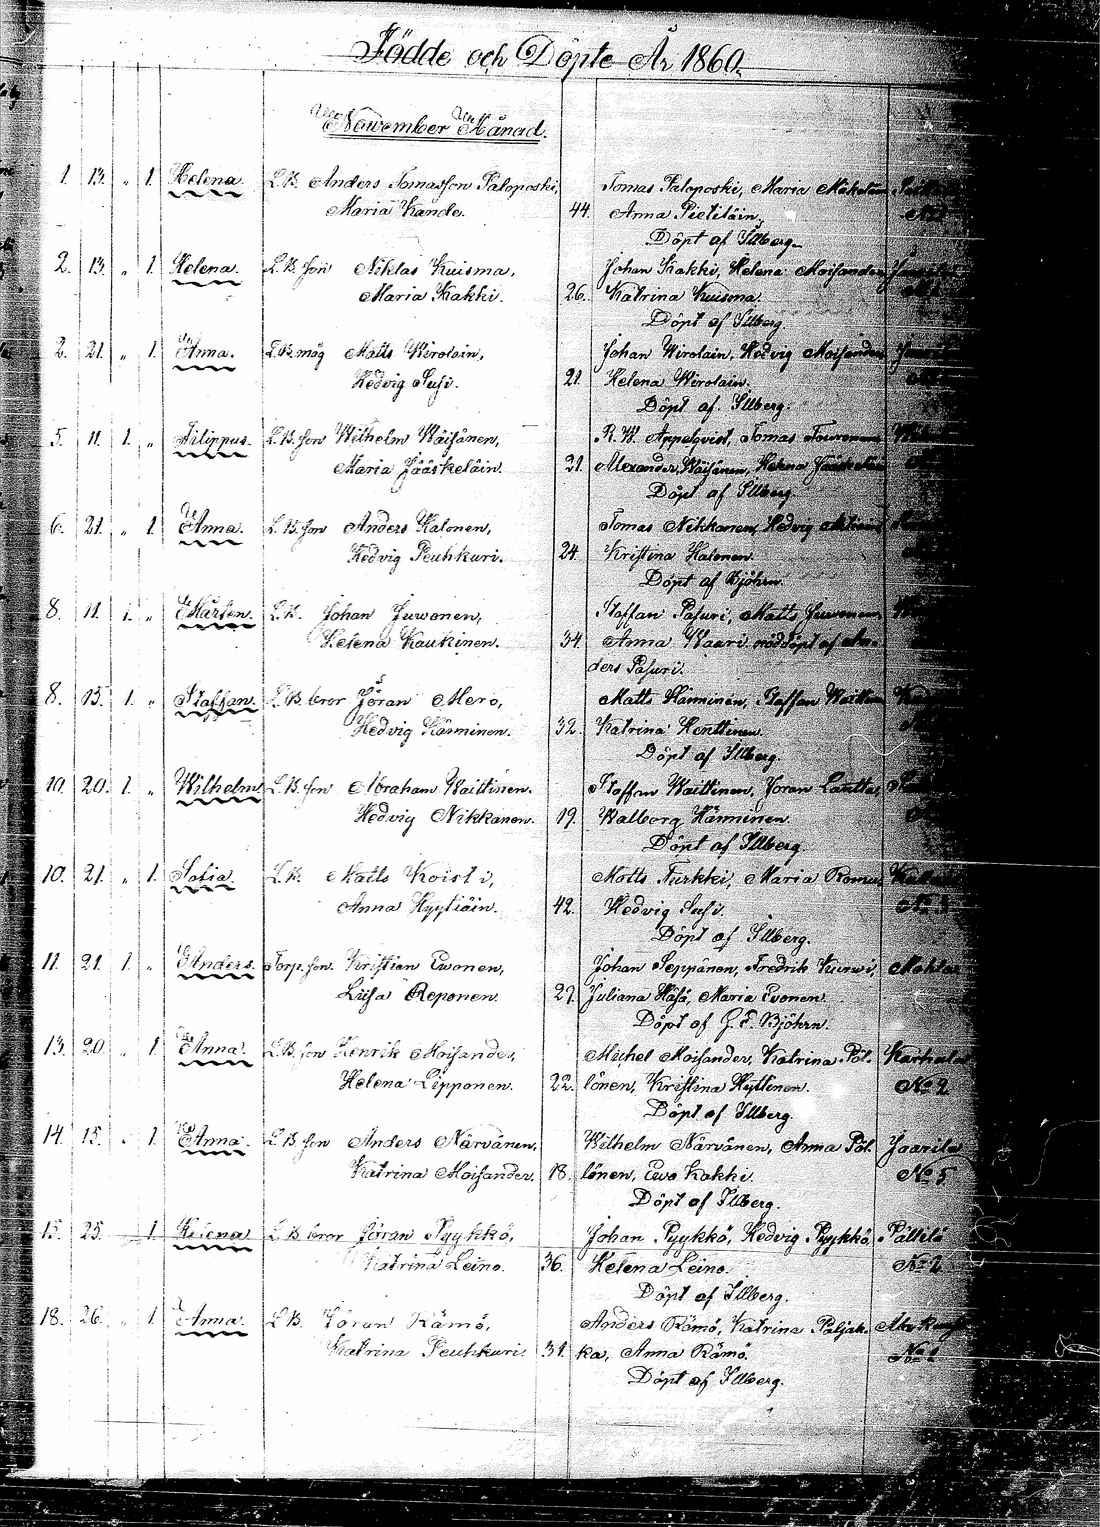 Födde och Döpte År 1860.
November Månad.
1. 13. " 1. Helena. L.B. Anders Tomasson Paloposki, Tomas Paloposki, Maria
Maria Kande. 44. Anna Pietiläin.
Döpt af Illberg.
2. 13. " 1. Helena. L.B. son Niklas Kuisma, Johan Kakki, Helena Moisander
Maria Kakki. 26. Katrina Kuisma.
Döpt af Illberg.
2. 21. " 1. Anna. L.B. måg Matts Wirolain, Johan Wirolain, Hedvig Moisander
Hedvig Susi. 21. Helena Wirolain.
Döpt af Illberg.
5. 11. 1. " Filippus. L.B. son Wilhelm Wäisänen, R. W. Appelqvist, Tomas
Maria Jääskeläin. 21. Alexander Wäisänen, Helena
Döpt af Illberg.
6. 21. " 1. Anna. L.B. son Anders Halonen, Tomas Nikkanen, Hedvig
Hedvig Peuhkuri. 24. Kristina Halonen.
Döpt af Björn.
8. 11. 1. " Mårten. L.B. Johan Juwonen, Staffan Pasuri, Matts Juwonen
Helena Kaukinen. 34. Anna Waari nöddöpt af An-
ders Pasuri.
8. 15. 1. " Staffan. L.B. bror Jöran Mero, Matts Hänninen, Staffan
Hedvig Hänninen. 32. Katrina Henttinen.
Döpt af Illberg.
10. 20. 1. " Wilhelm L.B. son Abraham Waittinen. Staffan Waittinen, Jöran
Hedvig Nikkanen. 19. Walborg Hänninen.
Döpt af Illberg.
10. 21. " 1. Sofia. L.B. Matts Koisti, Matts Turkki, Maria
Anna Hyytiäin. 42. Hedvig Susi. No 3
Döpt af Illberg.
11. 21. 1. " Anders. Torp. son. Kristian Ewonen, Johan Seppänen, Fredrik Kurwi,
Liisa Reponen. 27. Juliana Häsä, Maria Evonen.
Döpt of G. F. Björn.
13. 20. " 1. Anna. L.B. son Henrik Moisander, Michel Moisander, Katrina Pöl- Karhala
Helena Lipponen. 22. lönen, Kristina Hyttinen. No 2
Döpt af Illberg.
14. 15. " 1. Anna. L.B. son Anders Närvänen, Wilhelm Närvänen, Anna Pöl- Jaarila
Katrina Moisander. 18. lönen, Ewa Kakki. No 5
Döpt af Illberg.
15. 25. 1. Helena L.B. bror Jöran Pyykkö, Johan Pyykkö, Hedvig Pyykkö, Pättilä
Katrina Leino. 36. Helena Leino. No 2
Döpt af Illberg.
18. 26. " 1. Anna. L.B. Jöran Rämö, Anders Rämö, Katrina Paljak-
Katrina Peuhkuri. 31. ka, Anna Rämö. No 1
Döpt af Illberg.